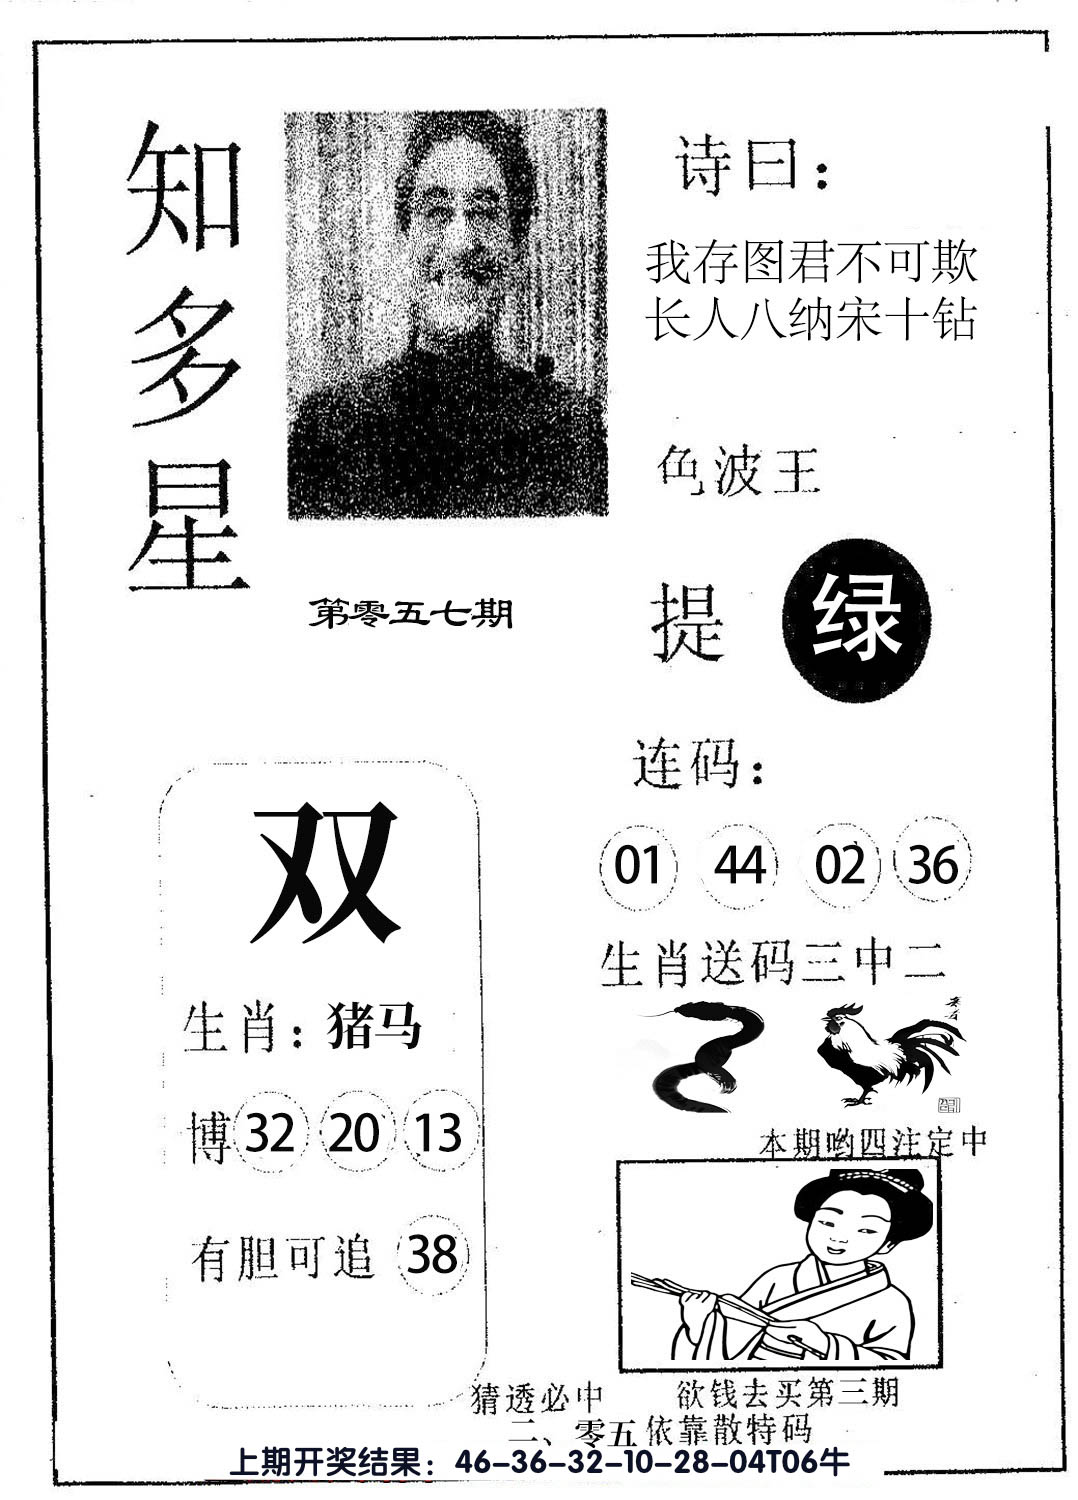 知多星
诗曰：
我存图君不可欺
长人八纳宋十钻
色波王
第零五七期
提 绿
连码：
01 44 02 36
双
生肖送码三中二
生肖：猪马
博 32 20 13
本期哟四注定中
有胆可追 38
猜透必中
欲钱去买第三期
二、零五依靠散特码
上期开奖结果：46-36-32-10-28-04T06牛